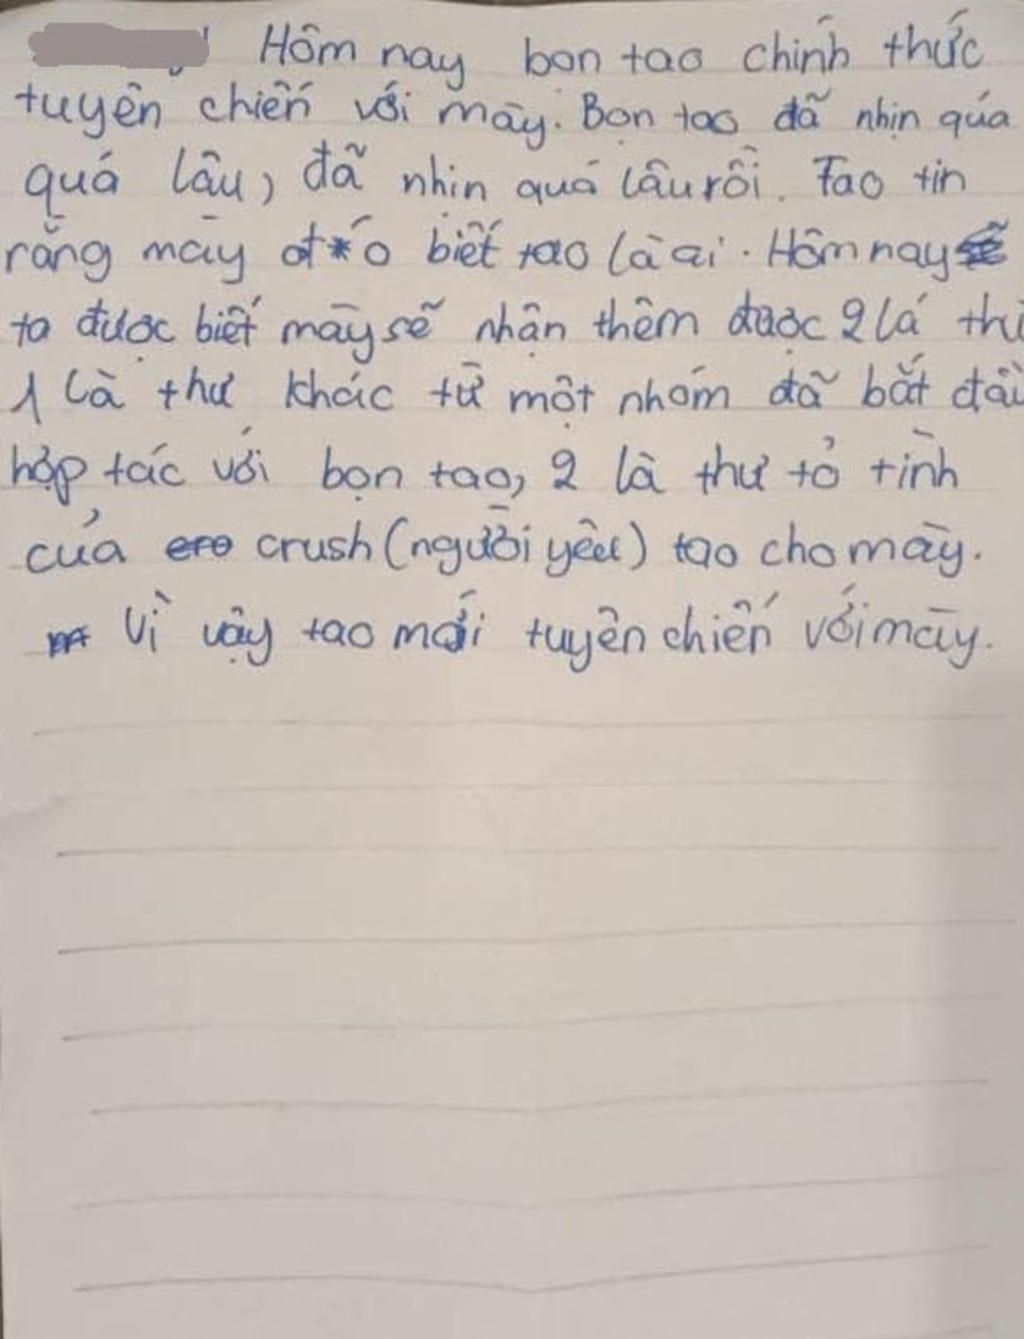 Hôm nay bọn tao chính thức
tuyên chiến với mày. Bọn tao đã nhịn qúa
quá lâu, đã nhịn quá lâu rồi. Tao tin
rằng mày đ*o biết tao là ai. Hôm nay
ta được biết mày sẽ nhận thêm được 2 lá thư
1 là thư khác từ một nhóm đã bắt đầu
hợp tác với bọn tao, 2 là thư tỏ tình
của crush (người yêu) tao cho mày.
Vì vậy tao mới tuyên chiến với mày.